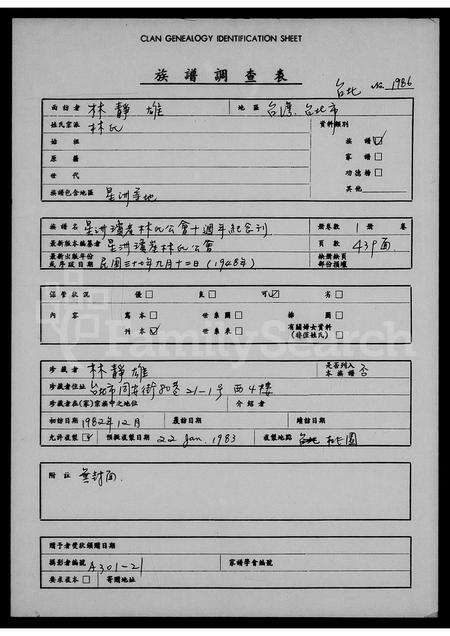 CLAN GENEALOGY IDENTIFICATION SHEET
族譜調查表
台北 No 1986
面訪者 林靜雄 地區 台灣台北市
姓氏宗派 林氏 資料類別
始祖 族譜☑
原籍 家譜□
世代 功德榜□
族譜包含地區 星洲等地 其他
族譜名 星洲瓊崖林氏公會十週年紀念刊 冊卷數 1 冊 卷
最新版本編纂者 星洲瓊崖林氏公會 頁數 439面
最新出版年份 殘缺缺頁
或序跋日期 民國三十七年九月十二日(1948年) 部份損壞
保管狀況 優□ 良□ 可☑ 劣□
內容 寫本□ 世系圖□ 插圖□
刊本☑ 世系表□ 有關婦女資料□
(母族姓氏)
FamilySearch
珍藏者 林靜雄 是否列入本族譜 否
珍藏者住址 台北市同安街80巷21-1号西4樓
珍藏者在(家)宗族中之地位 介紹者
初訪日期 1982年12月 履訪日期 續訪日期
允許複製☑ 預期複製日期 22 Jan. 1983 複製地點 桃園
附註 無封面.
贈予者獎狀頒贈日期
攝影者編號 A301-21 家譜學會編號
要求複本□ 寄贈地址